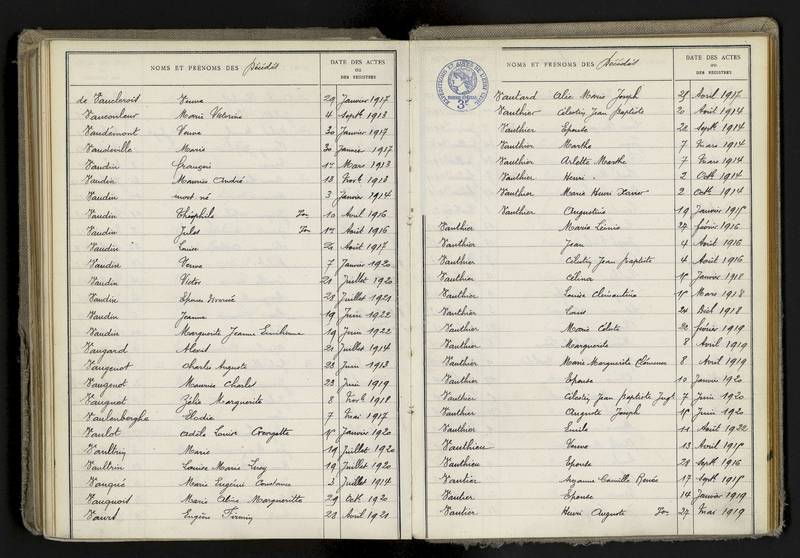 NOMS ET PRÉNOMS DES Décédés
DATE DES ACTES
OU
DES REGISTRES
de Vaucleroit Veuve 29 Janvier 1917
Vaucouleur Marie Victorine 4 Septb 1913
Vaudémont Veuve 30 Janvier 1917
Vaudeville Marie 30 Janvier 1917
Vaudin François 1er Mars 1913
Vaudin Maurice André 13 Novb 1913
Vaudin mort né 3 Janvier 1914
Vaudin Théophile 10 Avril 1916
Vaudin Jules 1er Août 1916
Vaudin Louise 26 Août 1917
Vaudin Veuve 7 Janvier 1920
Vaudin Victor 21 Juillet 1920
Vaudin Epouse divorcée 28 Juillet 1921
Vaudin Jeanne 19 Juin 1922
Vaudin Marguerite Jeanne 19 Juin 1922
Vaugard Alexis 21 Juillet 1914
Vaugenot Charles Auguste 23 Juin 1913
Vaugenot Maurice Charles 23 Juin 1919
Vaugnot Zélie Marguerite 8 Novb 1918
Vaulenberghe Elodie 7 Mai 1917
Vaulot Adèle Louise Georgette Janvier 1920
Vaultrin Marie 19 Juillet 1920
Vaultrin Louise Marie Lucy 19 Juillet 1920
Vauqué Marie Eugénie Constance 3 Juillet 1914
Vauquois Marie Célina Marguerite 29 Octb 1920
Vaurt Eugène Firmin 28 Avril 1921
NOMS ET PRÉNOMS DES Décédés
DATE DES ACTES
OU
DES REGISTRES
3F
Vautard Marie Joseph 25 Avril 1917
Vauthier Célestin Jean Baptiste 20 Août 1914
Vauthier Epouse 20 Septb 1914
Vauthier Marthe 7 Mars 1914
Vauthier Arlette Marthe 7 Mars 1914
Vauthier Henri 2 Octb 1914
Vauthier Marie Henri Xavier 2 Octb 1914
Vauthier Augustine 19 Janvier 1915
Vauthier Marie 27 février 1916
Vauthier Jean 4 Août 1916
Vauthier Célestin Jean Baptiste 4 Août 1916
Vauthier Célina 15 Janvier 1918
Vauthier Louise Clémentine 15 Mars 1918
Vauthier Louis 21 Décb 1918
Vauthier Marie Céleste 20 février 1919
Vauthier Marguerite 8 Avril 1919
Vauthier Marie Marguerite Clémence 8 Avril 1919
Vauthier Epouse 10 Janvier 1920
Vauthier Célestin Jean Baptiste 7 Juin 1920
Vauthier Auguste Joseph 15 Juin 1920
Vauthier Emile 11 Août 1922
Vauthieu Veuve 13 Avril 1915
Vauthieu Epouse 28 Septb 1916
Vautier Camille Renée 17 Septb 1915
Vautier Epouse 14 Janvier 1919
Vautier Henri Auguste 27 Mai 1919